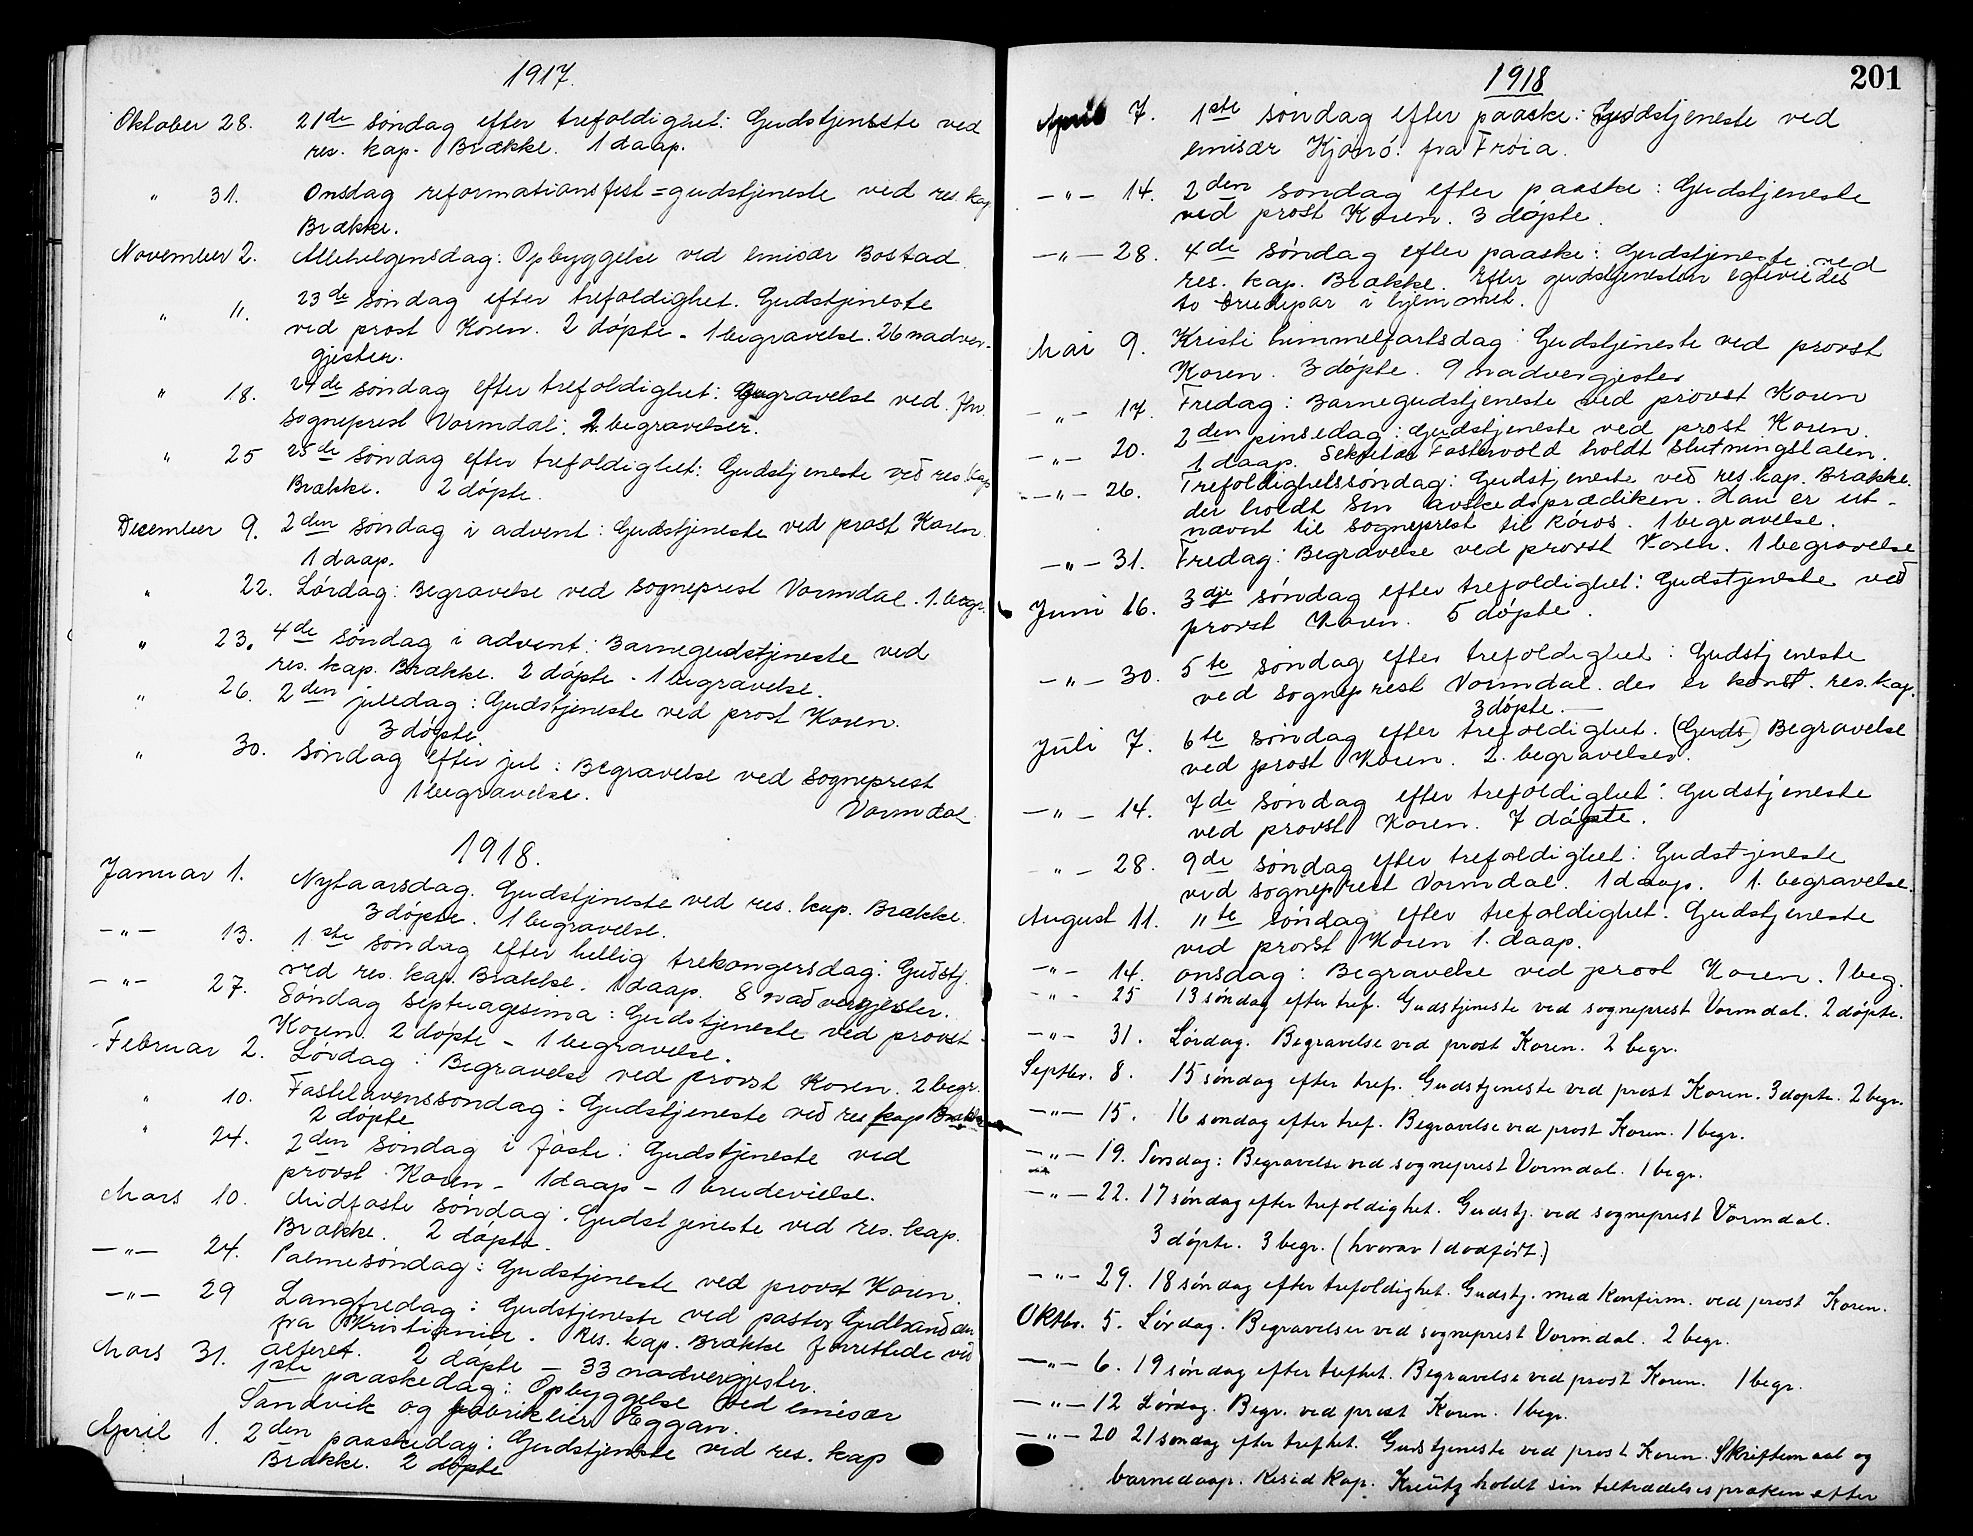 1917.
Oktober 28. 21de søndag efter trefoldighet: Gudstjeneste ved
res. kap. Brække. 1 daap.
" 31. Onsdag reformationsfest=gudstjeneste ved res. kap
Brække.
November 2. Allehelgensdag: Opbyggelse ved emisær Bostad.
" 11. 23de søndag efter trefoldighet. Gudstjeneste
ved prost Koren. 2 døpte - 1 begravelse. 26 nadver-
gjester.
" 18. 24de søndag efter trefoldighet: Begravelse ved
sogneprest Vormdal: 2 begravelser.
" 25 25de søndag efter trefoldighet: Gudstjeneste ved res. kap
Brække. 2 døpte.
December 9. 2den søndag i advent: Gudstjeneste ved prost Koren.
1 daap.
" 22. Lørdag: Begravelse ved sogneprest Vormdal. 1. begr.
" 23. 4de søndag i advent: Barnegudstjeneste ved
res. kap. Brække. 2 døpte - 1 begravelse.
" 26. 2den juledag: Gudstjeneste ved prost Koren.
3 døpte.
" 30. Søndag efter jul: Begravelse ved sogneprest
1 begravelse. Vormdal
1918.
Januar 1. Nytaarsdag. Gudstjeneste ved res. kap. Brække.
3 døpte. 1 begravelse.
-"- 13. 1ste søndag efter hellig trekongersdag: Gudstj.
ved res. kap. Brække. 1 daap. 8 nadvergjester.
-"- 27. Søndag septuagesima: Gudstjeneste ved provst
Koren. 2 døpte - 1 begravelse.
Februar 2. Lørdag: Begravelse ved provst Koren. 2 begr.
" 10. Fastelavenssøndag: Gudstjeneste ved res kap Brække
2 døpte
" 24. 2den søndag i faste: Gudstjeneste ved
provst Koren - 1 daap - 1 brudevielse.
Mars 10. Midfaste søndag: Gudstjeneste ved res. kap.
Brække. 2 døpte.
-"- 24. Palmesøndag: Gudstjeneste ved provst Koren.
-"- 29 Langfredag: Gudstjeneste ved pastor Gudbrandsen
fra Kristiania. Res. kap. Brække forrettede ved
alteret. 2 døpte - 33 nadvergjester.
Mars 31. 1ste paaskedag: Opbyggelse ved emisær
Sandvik og fabrikeier Eggan.
April 1. 2den paaskedag: Gudstjeneste ved res. kap
Brække. 2 døpte
1918
201
April 7. 1ste søndag efter paaske: Gudstjeneste ved
emisær Kjønø: fra Frøia.
-"- 14. 2den søndag efter paaske: Gudstjeneste
ved prost Koren. 3 døpte.
-"- 28. 4de søndag efter paaske: Gudstjeneste ved
res. kap. Brække. Efter gudstjenesten egteviedes
to brudepar i hjemmet.
Mai 9. Kristi himmelfartsdag: Gudstjeneste ved provst
Koren. 3 døpte. 9 nadvergjester
-"- 17. Fredag: Barnegudstjeneste ved provst Koren
-"- 20. 2den pinsedag: Gudstjeneste ved prost Koren.
1 daap. Sekretær Fostervold holdt slutningstalen.
-"- 26. Trefoldighetssøndag: Gudstjeneste ved res. kap. Brække.
der holdt sin avskedsprædiken. Han er ut-
nævnt til sogneprest til Røros. 1 begravelse.
-"- 31. Fredag: Begravelse ved provst Koren. 1 begravelse
Juni 16. 3dje søndag efter trefoldighet: Gudstjeneste ved
provst Koren. 5 døpte.
-"- 30. 5te søndag efter trefoldighet: Gudstjeneste
ved sogneprest Vormdal. der er konst. res. kap.
3 døpte.
Juli 7. 6te søndag efter trefoldighet. (Guds) Begravelse
ved prost Koren. 2. begravelser.
-"- 14. 7de søndag efter trefoldighet: Gudstjeneste
ved provst Koren. 7 døpte.
-"- 28. 9de søndag efter trefoldighet: Gudstjeneste
ved sogneprest Vormdal. 1 daap. 1. begravelse.
August 11. 11te søndag efter trefoldighet. Gudstjeneste
ved provst Koren 1. daap.
-"- 14. onsdag: Begravelse ved prost Koren. 1 beg.
-"- 25 13 søndag efter tref. Gudstjeneste ved sogneprest Vormdal. 2 døpte.
-"- 31. Lørdag. Begravelse ved prost Koren. 2 begr.
Septbr. 8. 15 søndag efter tref. Gudstjeneste ved prost Koren. 3 døpte. 2 begr.
-"- 15. 16 søndag efter tref. Begravelse ved prost Koren. 1 begr.
-"- 19. Torsdag: Begravelse ved sogneprest Vormdal. 1 begr.
-"- 22. 17 søndag efter trefoldighet. Gudstj. ved sogneprest Vormdal.
3 døpte. 3 begr. (hvorav 1 dødfødt.)
-"- 29. 18 søndag efter trefoldighet. Gudstj. med Konfirm. ved prost Koren.
Oktbr. 5. Lørdag. Begravelser ved sogneprest Vormdal. 2 begr.
-"- 6. 19 søndag efter trefhet. Begravelse ved prost Koren. 1 begr.
-"- 12 Lørdag. Begr. ved prost Koren. 1 begr.
-"- 20 21 søndag efter trefhet. Gudstjeneste ved prost Koren. Skriftemaal og
barnedaap. Resid Kap. Kreutz holdt sin tiltrædelsespræken efter